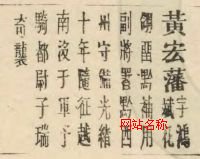 黃宏藩字鴻
黔補用
副將署黔西
州守備光緒
十年隨征越
南歿于軍予
騎都尉子瑞
奇襲
网站名称